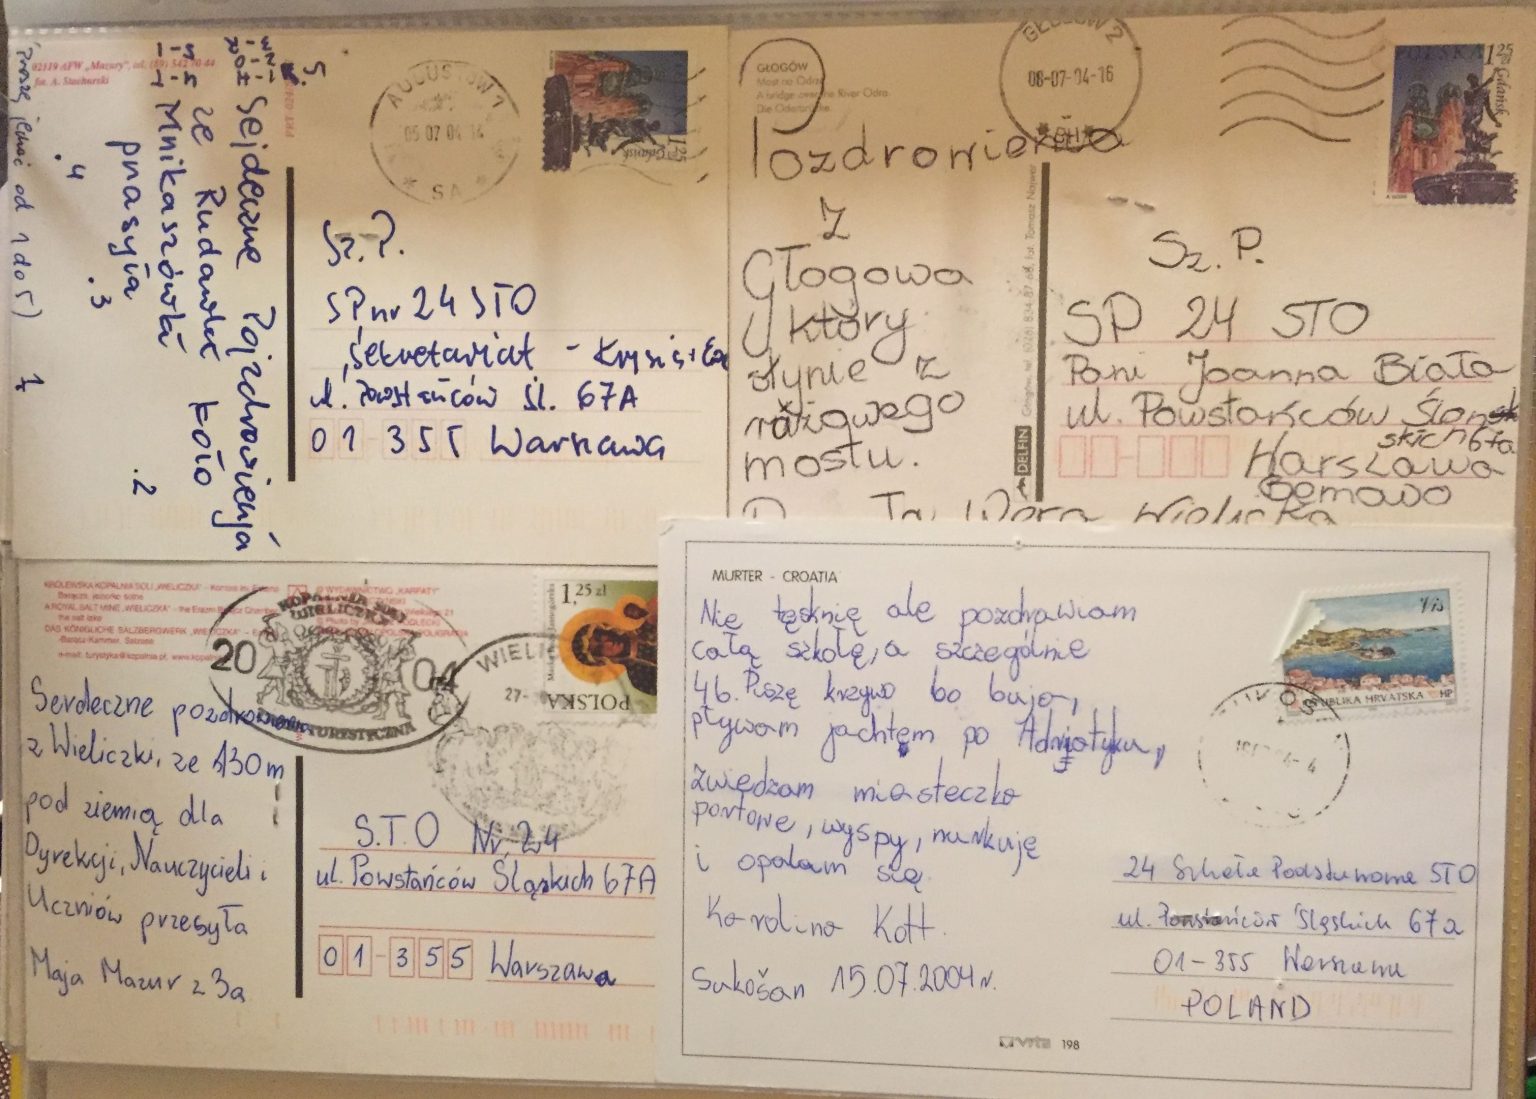 02119 AFW „Mazury”, tel. (89) 542 70 44
fot. A. Stachurski
Serdeczne Pozdrowienia
ze Rudawki koło
Mikaszówki
przesyła
.4
.3
.2
1
5.
(Proszę jechać od 1 do 5)
AUGUSTÓW 1
05 07 04 14
SA
1,25
Gdańsk
Sz. P.
SP nr 24 STO
Sekretariat - Krysia i Ewa
ul. Powstańców Śl. 67A
01 355 Warszawa
GŁOGÓW
Most na Odrze
A bridge over the River Odra
Die Oderbrücke
Pozdrowienia
z
Głogowa
który
słynie z
różowego
mostu.
Wielicka
DELFIN
GŁOGÓW 2
08-07-04-16
POLSKA 1,25
Gdańsk
Sz. P.
SP 24 STO
Pani Joanna Biała
ul. Powstańców Ślon
skich 67a
Warszawa
Bemowo
KRÓLEWSKA KOPALNIA SOLI „WIELICZKA”
A ROYAL SALT MINE „WIELICZKA” - the Erazm Barącz Chamber
the salt lake
DAS KÖNIGLICHE SALZBERGWERK „WIELICZKA”
Barącz Kammer, Salzsee
e-mail: turystyka@kopalnia.pl, www.kopal
WYDAWNICTWO „KARPATY”
KOPALNIA SOLI
WIELICZKA
2004
TURYSTYCZNA
WIELIC
27-
1,25 zł
POLSKA
Serdeczne pozdrowienia
z Wieliczki, ze 130m
pod ziemią dla
Dyrekcji, Nauczycieli i
Uczniów przesyła
Maja Mazur z 3a
S.T.O Nr. 24
ul. Powstańców Śląskich 67A
01-355 Warszawa
MURTER - CROATIA
Nie tęsknię ale pozdrawiam
całą szkołę, a szczególnie
4b. Piszę krzywo bo buja,
pływam jachtem po Adriatyku,
zwiedzam miasteczka
portowe, wyspy, nurkuję
i opalam się.
Karolina Kott.
Sukošan 15.07.2004r.
REPUBLIKA HRVATSKA HP
24 Szkoła Podstawowa STO
ul. Powstańców Śląskich 67a
01-355 Warszawa
POLAND
198